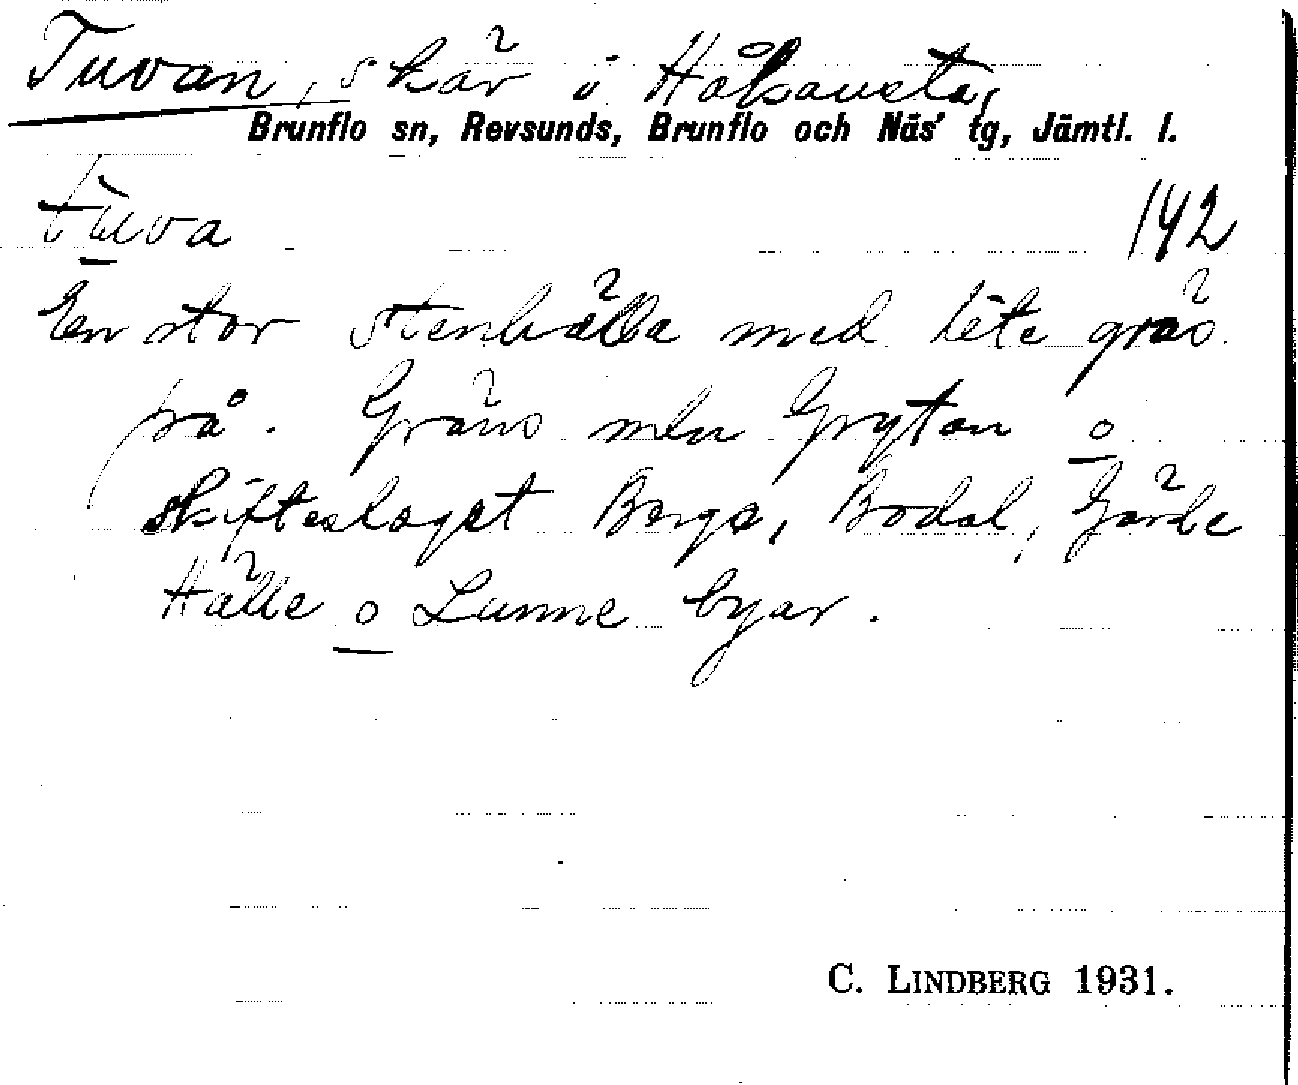 Tuvan, skär i Håkansta,
Brunflo sn, Revsunds, Brunflo och Näs' tg, Jämtl. l.
tùva 142
En stor stenhälla med lite gräs
på. Gräns mln Grytan o
skifteslaget Berge, Bodal, Gärde
Hälle o Lunne byar.
C. LINDBERG 1931.